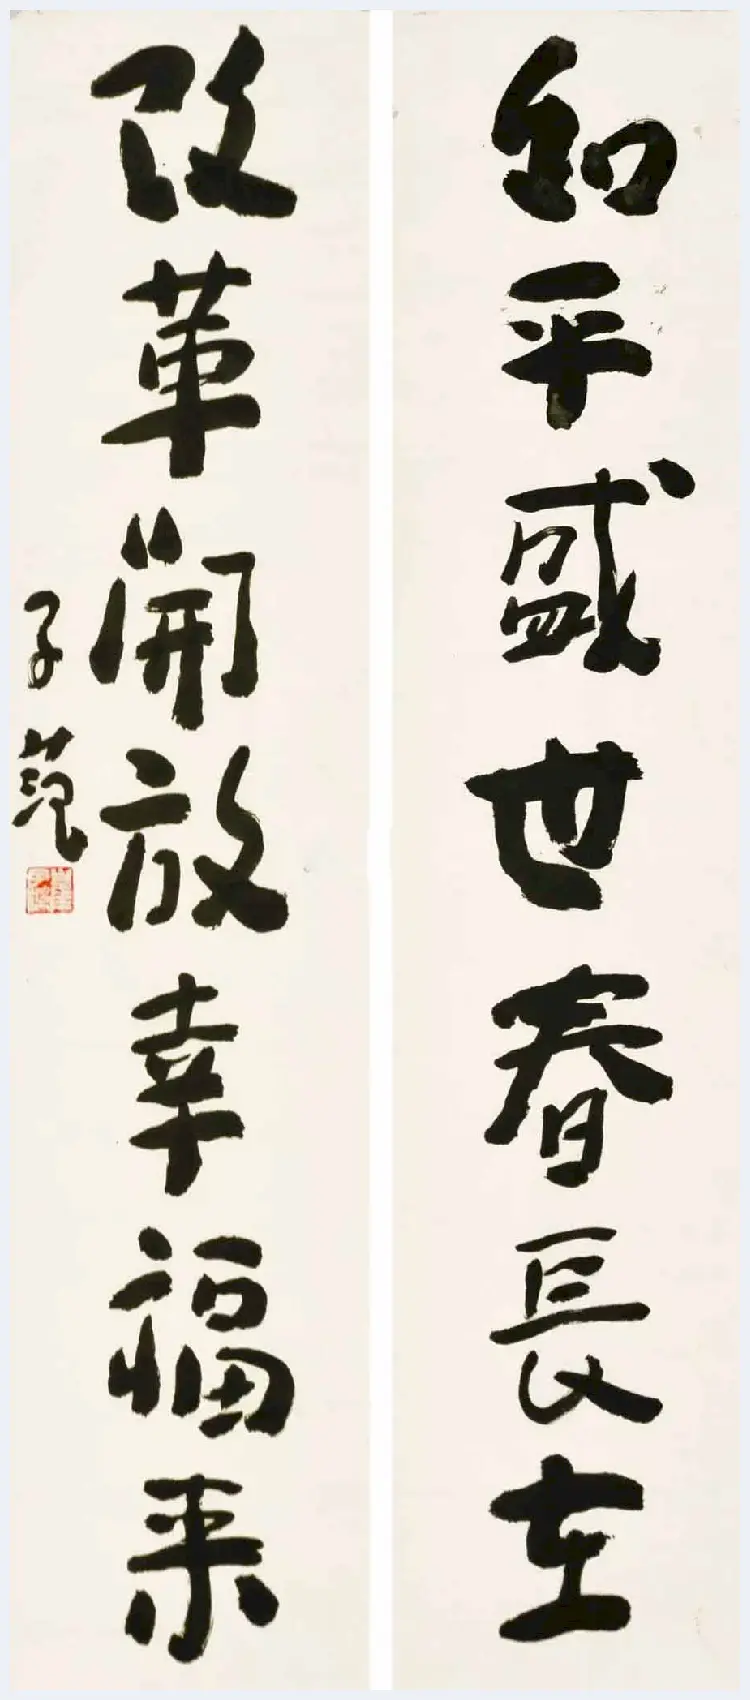 和平盛世春長在
改革開放幸福來
子范